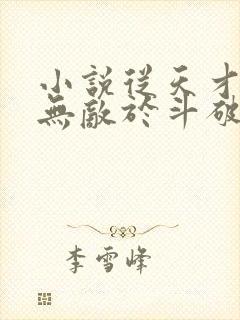 小說從天才
無敵於斗破
李雪峰